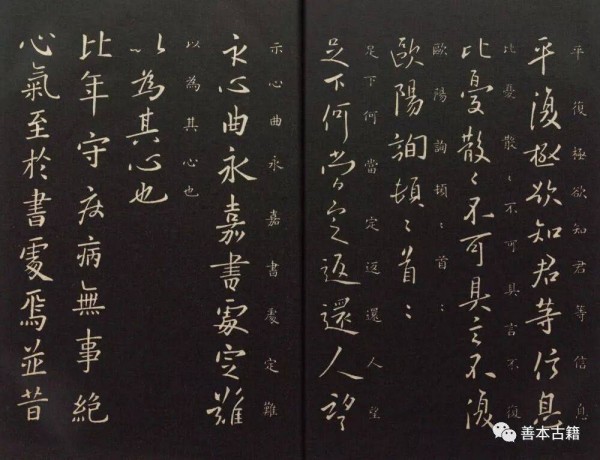 平復極欲知君等信息
平復極欲知君等信具
比憂散〻不可具言不復
比憂散〻不可具言不復
歐陽詢頓〻首〻
歐陽詢頓〻首〻
足下何當定返還人望
足下何當定返還人望
示心曲永嘉書處定難
示心曲永嘉書處定難
以為其心也
以為其心也
比年守疾病無事絕
心氣至於書處焉並昔
善本古籍